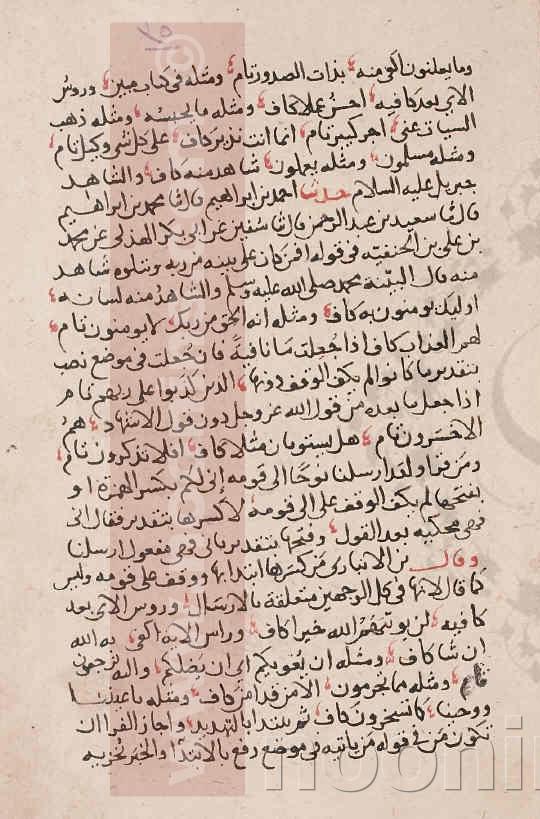 ٧٥
وما يعلنون اكفى منه بذات الصدور تام ومثله في كتاب مبين وروس
الاي بعد كافيه احسن عملا كاف ومثله ما يحبسه ومثله ذهب
السيات عني اجر كبير تام انما انت نذير كاف على كل شي وكيل تام
ومثله مسلمون ومثله يعملون شاهد منه كاف والشاهد
جبريل عليه السلام حدثنا احمد بن ابراهيم قال ثنا محمد بن ابراهيم
قال ثنا سعيد بن عبد الرحمن قال ثنا سفين عن ابي بكر الهذلي عن محمد
بن علي بن الحنفيه في قوله افمن كان على بينه من ربه ويتلوه شاهد
منه قال البينة محمد صلى الله عليه وسلم والشاهد منه لسانه
اوليك يومنون به كاف ومثله انه الحق من ربك لا يومنون تام
لهم العذاب كاف اذا جعلت ما نافية فان جعلت في موضع نصب
بتقدير بما كانوا لم يكف الوقف دونها الذين كذبوا على ربهم تام
اذا جعل ما بعده من قول الله عز وجل دون قول الاشهاد هم
الاخسرون تام هل يستويان مثلا كاف افلا تذكرون تام
ومن قرا ولقد ارسلنا نوحا الى قومه اني لكم بكسر الهمزة او
بفتحها لم يكف الوقف على الى قومه لان كسرها بتقدير فقال اني
فهي محكيه بعد القول وفتحها بتقدير باني فهي مفعول ارسلنا
وقال بن الانباري من كسرها ابتدا بها ووقف على قومه وليس
كما قال لانها في كل الوجهين متعلقة بالارسال وروس الاي بعد
كافيه لن يوتيهم الله خيرا كاف وراس الاية اكفى به الله
ان شا كاف ومثله ان يغويكم اي ان يضلكم واليه ترجعون
تام ومثله مما تجرمون الا من قد امن كاف ومثله باعيننا
ووحينا كما تسخرون كاف ثم يبتدا بالتهديد واجاز الفرا ان
تكون من في قوله من ياتيه في موضع رفع بالابتدا والخبر يخزيه
noorin